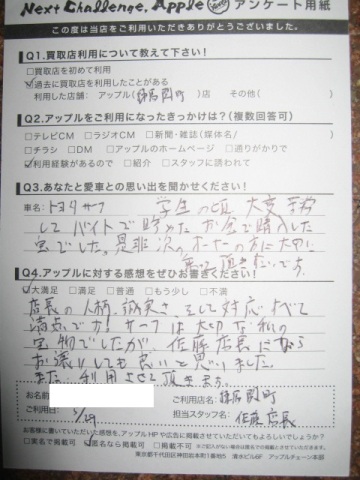 Next Challenge, Apple アンケート用紙
この度は当店をご利用いただきありがとうございました。
Q1.買取店利用について教えて下さい!
□買取店を初めて利用
☑過去に買取店を利用したことがある
利用した店舗: アップル(練馬関町)店 その他( )
Q2.アップルをご利用になったきっかけは?(複数回答可)
□テレビCM □ラジオCM □新聞・雑誌(媒体名/ )
□チラシ □DM □アップルのホームページ □通りがかりで
☑利用経験があるので □紹介 □スタッフに誘われて
Q3.あなたと愛車との思い出を聞かせください!
車名:トヨタサーフ 学生の頃、大変苦労
してバイトで貯めたお金で購入した
宝でした。是非次のオーナーの方に大切に
乗って頂きたいです。
Q4.アップルに対する感想をぜひお書きください!
☑大満足 □満足 □普通 □もう少し □不満
店長の人柄、誠実さ、そして対応すべて
満点です!サーフは大切な私の
宝物でしたが、佐藤店長になら
お譲りしても良いと思いました。
また、利用させて頂きます。
お名前
ご利用店名:練馬関町
ご利用日: 6/29
担当スタッフ名:佐藤店長
お客様に書いていただいた感想を、アップルHPや広告に掲載させていただいてもよろしいでしょうか?
□実名で掲載可 ☑匿名なら掲載可 □掲載不可 ※ご記入がない場合は匿名での掲載とさせていただきます。
東京都千代田区神田岩本町1番地5 清水ビル6F アップルチェーン本部